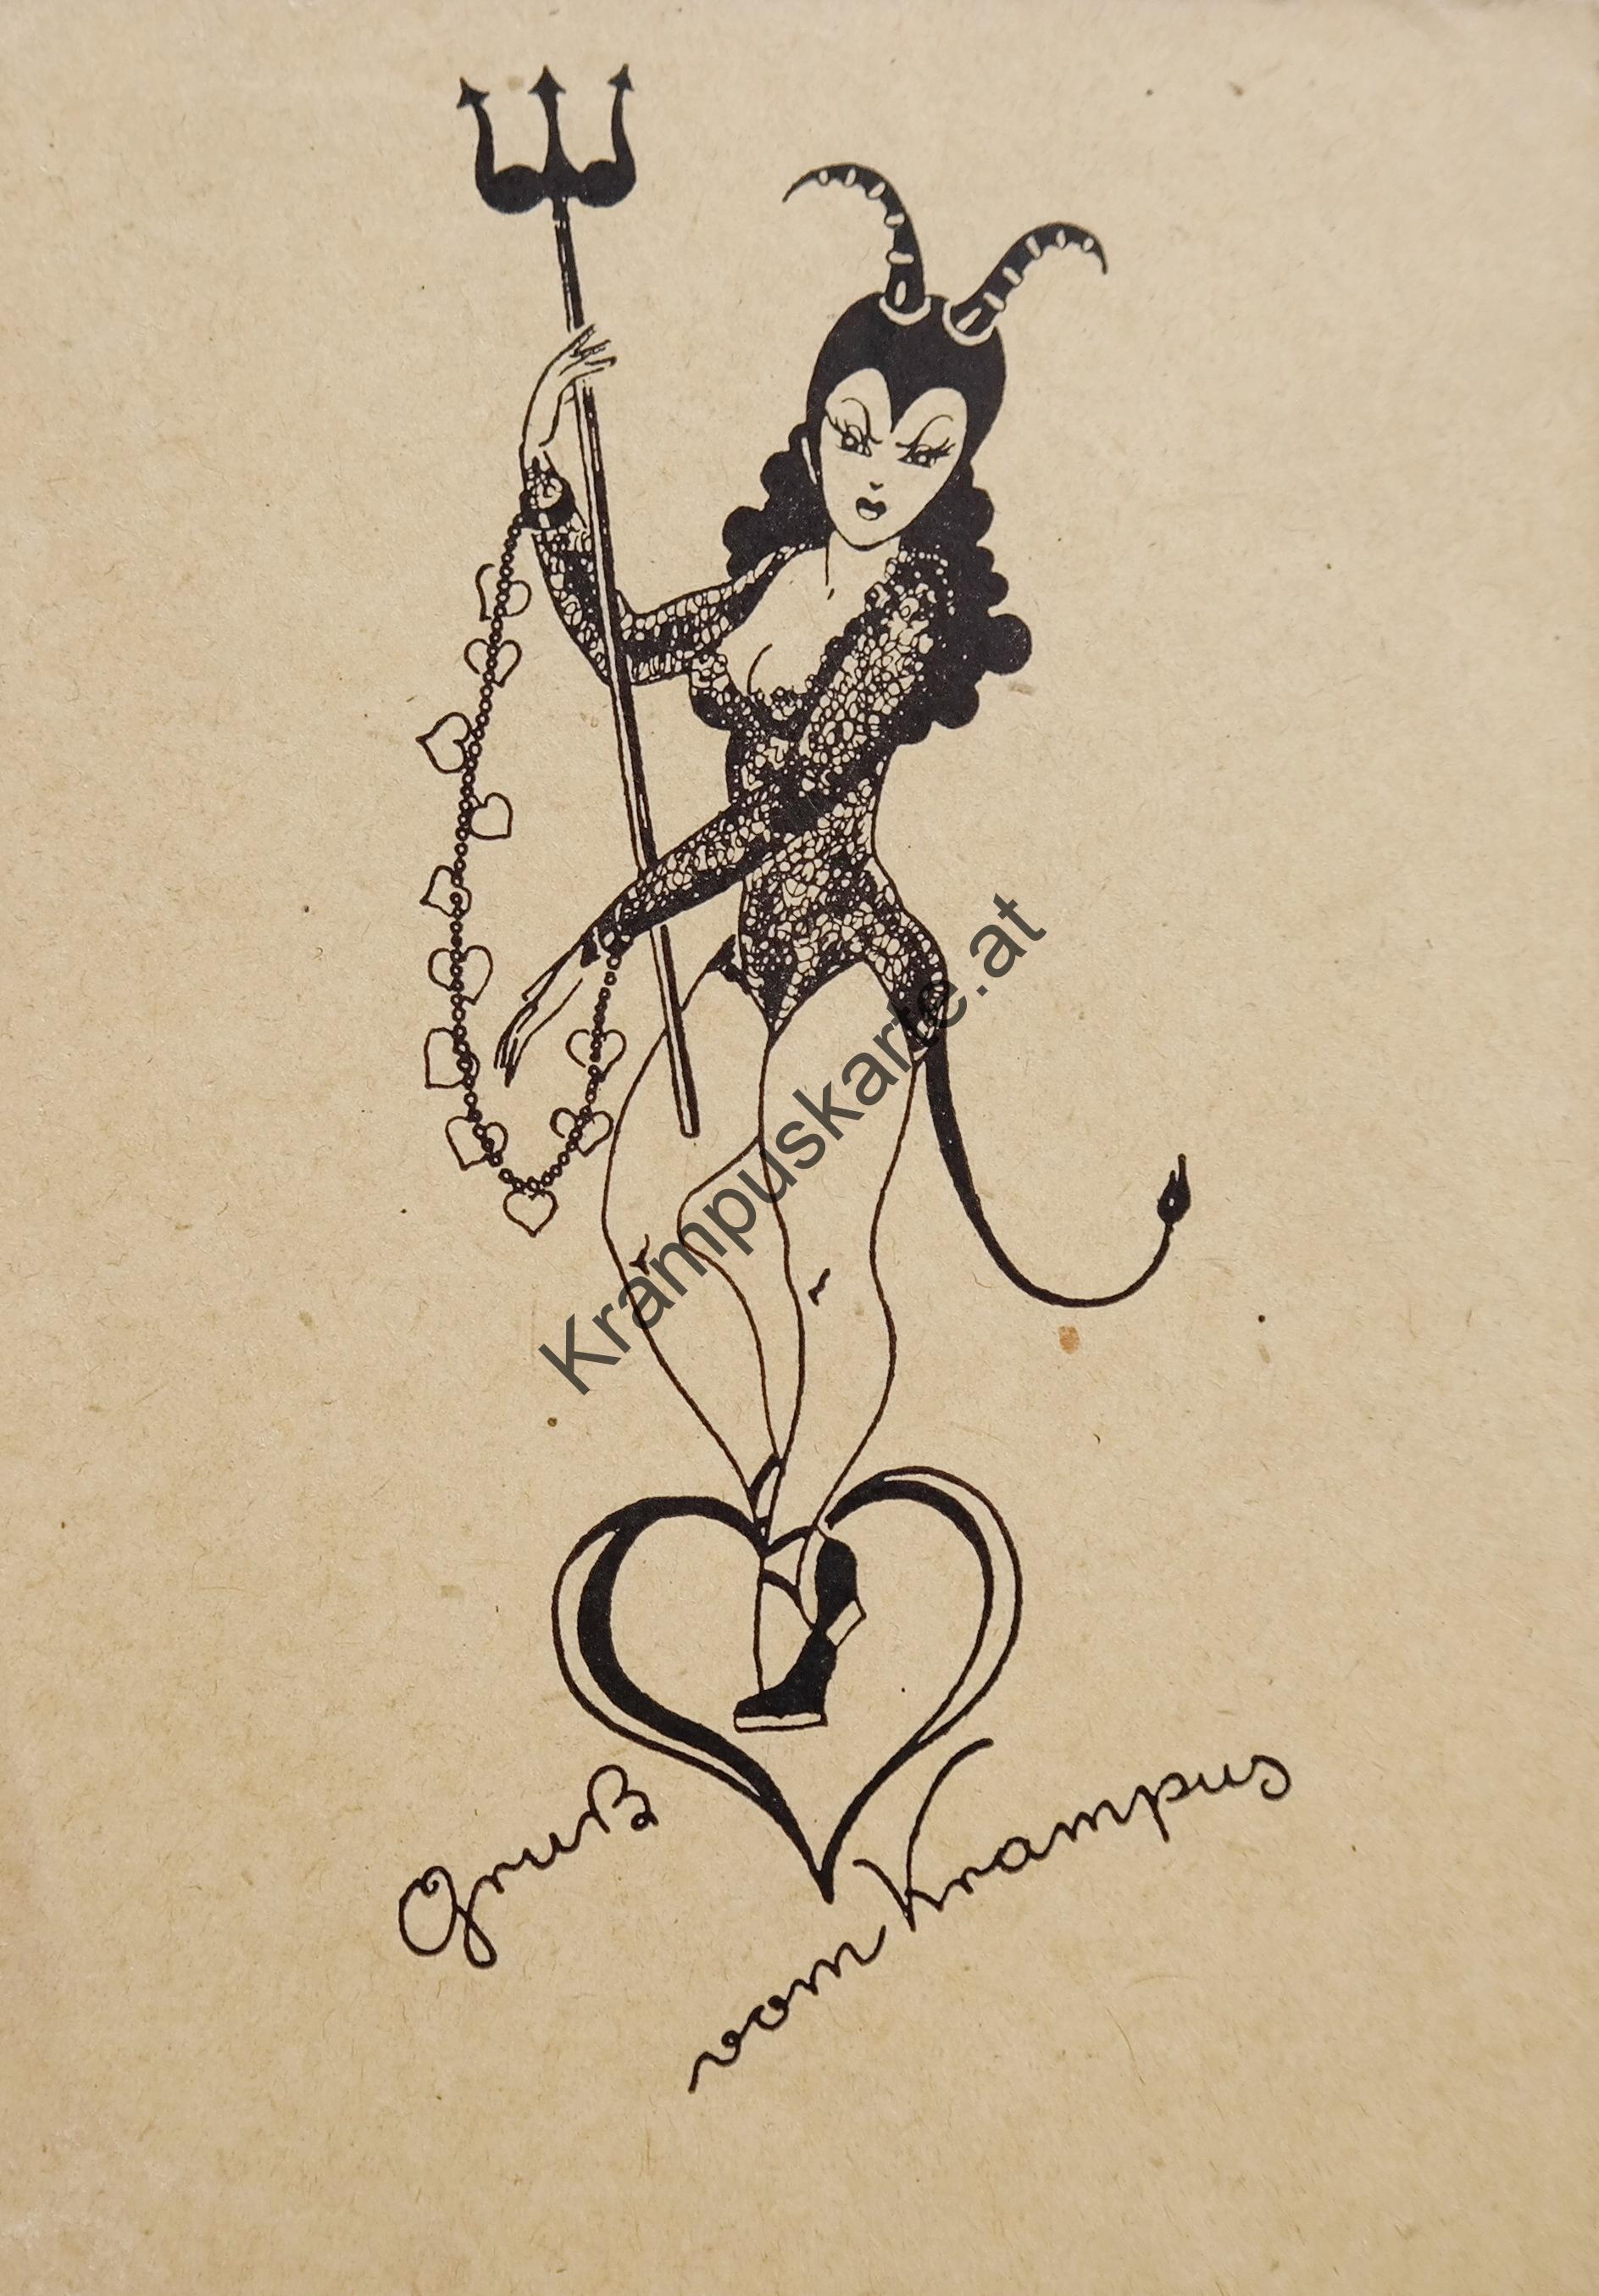 Gruß
vom Krampus
Krampuskarte.at